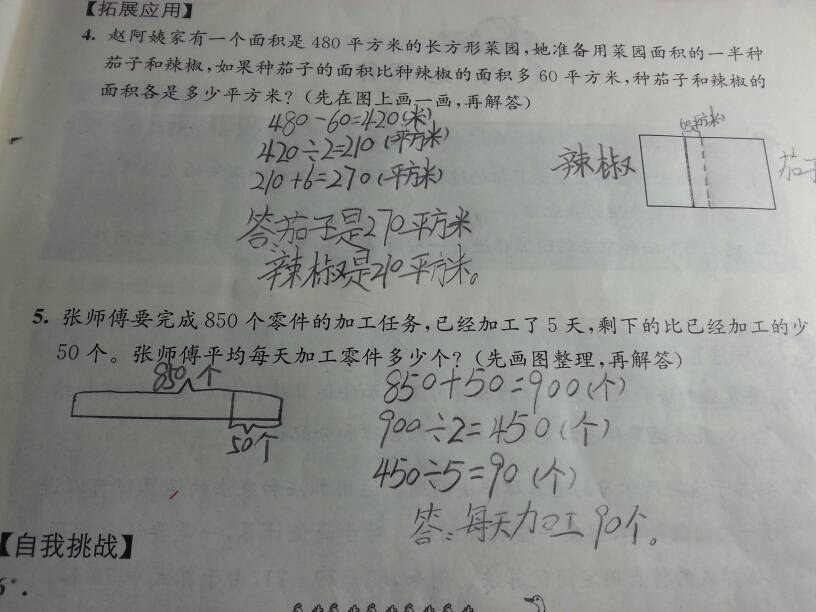 【拓展应用】
4. 赵阿姨家有一个面积是 480 平方米的长方形菜园,她准备用菜园面积的一半种
茄子和辣椒,如果种茄子的面积比种辣椒的面积多 60 平方米,种茄子和辣椒的
面积各是多少平方米?(先在图上画一画,再解答)
480-60=420(米)
420÷2=210(平方米)
210+6=270(平方米)
答:茄子是270平方米
辣椒是210平方米。
辣椒
茄子
5. 张师傅要完成 850 个零件的加工任务,已经加工了 5 天,剩下的比已经加工的少
50 个。张师傅平均每天加工零件多少个?(先画图整理,再解答)
850个
50个
850+50=900(个)
900÷2=450(个)
450÷5=90(个)
答:每天加工90个。
【自我挑战】
6*.